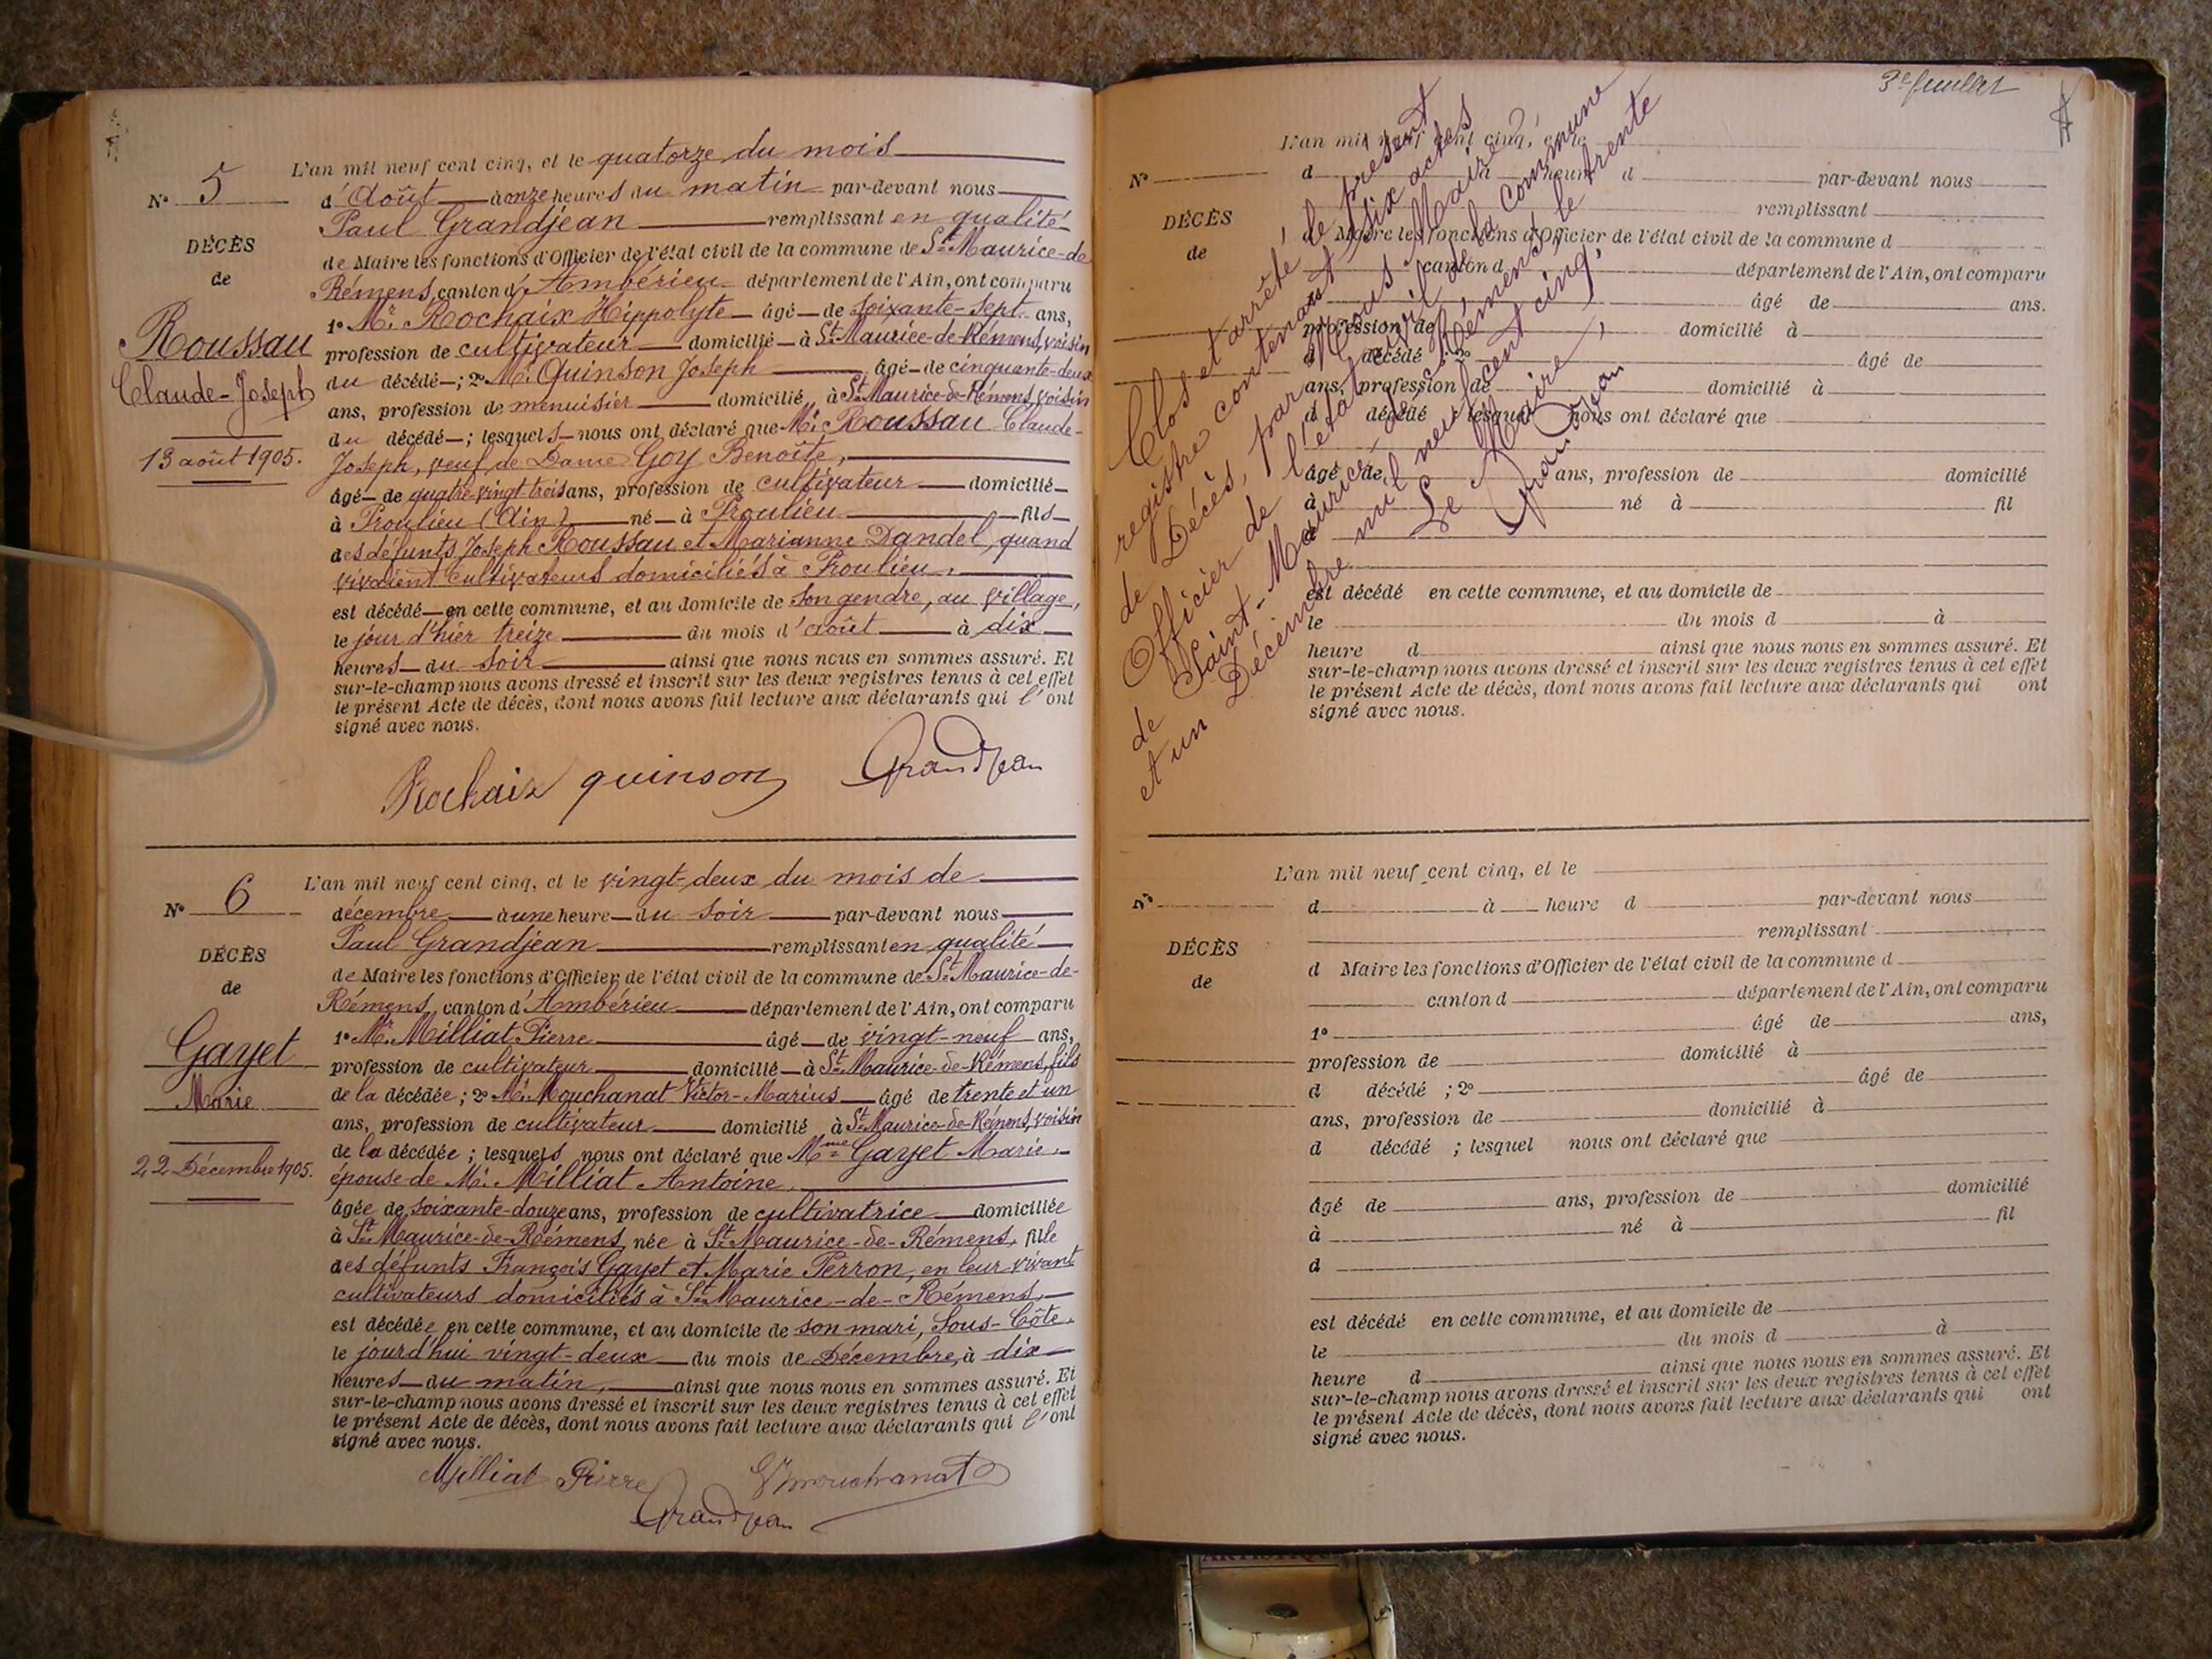 L'an mil neuf cent cinq, et le quatorze du mois
N° 5
d'Août à onze heures du matin par-devant nous
Paul Grandjean remplissant en qualité
DÉCÈS
de Maire les fonctions d'Officier de l'état civil de la commune de St Maurice-de
de
Rémens, canton d'Ambérieu département de l'Ain, ont comparu
1° Mr. Rochaix Hippolyte âgé de soixante-sept ans,
Roussau
profession de cultivateur domicilié à St Maurice-de-Rémens, voisin
du décédé ; 2° Mr. Quinson Joseph âgé de cinquante-deux
Claude-Joseph
ans, profession de menuisier domicilié à St Maurice-de-Rémens, voisin
du décédé ; lesquels nous ont déclaré que Mr. Roussau Claude-
13 août 1905.
Joseph, veuf de Dame Goy Benoîte,
âgé de quatre-vingt trois ans, profession de cultivateur domicilié
à Proulieu (Ain) né à Proulieu fils
des défunts Joseph Roussau et Marianne Dandel, quand
vivaient cultivateurs domiciliés à Proulieu,
est décédé en cette commune, et au domicile de son gendre, au village,
le jour d'hier treize du mois d'août à dix
heures du soir ainsi que nous nous en sommes assuré. Et
sur-le-champ nous avons dressé et inscrit sur les deux registres tenus à cet effet
le présent Acte de décès, dont nous avons fait lecture aux déclarants qui l'ont
signé avec nous.
Rochaix quinson Grandjean
L'an mil neuf cent cinq, et le vingt-deux du mois de
N° 6
décembre à une heure du soir par-devant nous
Paul Grandjean remplissant en qualité
DÉCÈS
de Maire les fonctions d'Officier de l'état civil de la commune de St Maurice-de-
de
Rémens, canton d'Ambérieu département de l'Ain, ont comparu
1° Mr. Milliat Pierre âgé de vingt-neuf ans,
Gayet
profession de cultivateur domicilié à St Maurice-de-Rémens, fils
Marie
de la décédée ; 2° Mr. Mouchanat Victor-Marius âgé de trente et un
ans, profession de cultivateur domicilié à St Maurice-de-Rémens, voisin
de la décédée ; lesquels nous ont déclaré que Mme Gayet Marie,
22 Décembre 1905.
épouse de Mr. Milliat Antoine,
âgée de soixante-douze ans, profession de cultivatrice domiciliée
à St Maurice-de-Rémens, née à St Maurice-de-Rémens, fille
des défunts François Gayet et Marie Perron, en leur vivant
cultivateurs domiciliés à St Maurice-de-Rémens,
est décédée en cette commune, et au domicile de son mari, Sous-Côte,
le jourd'hui vingt-deux du mois de Décembre, à dix
heures du matin, ainsi que nous nous en sommes assuré. Et
sur-le-champ nous avons dressé et inscrit sur les deux registres tenus à cet effet
le présent Acte de décès, dont nous avons fait lecture aux déclarants qui l'ont
signé avec nous.
Milliat Pierre Vmouchanat
Grandjean
3e feuillet
Clos et arrêté le présent
registre contenant six actes
de Décès, par Nous Maire,
Officier de l'état civil de la commune
de Saint-Maurice-de-Rémens, le trente
et un Décembre mil neuf cent cinq.
Le Maire,
Grandjean
L'an mil neuf cent cinq, et le
N°
d à heure d par-devant nous
remplissant
DÉCÈS
d Maire les fonctions d'Officier de l'état civil de la commune d
de
canton d département de l'Ain, ont comparu
âgé de ans.
profession de domicilié à
d décédé ; 2° âgé de
ans, profession de domicilié à
d décédé ; lesquel nous ont déclaré que
âgé de ans, profession de domicilié
à né à fil
d
est décédé en cette commune, et au domicile de
le du mois d à
heure d ainsi que nous nous en sommes assuré. Et
sur-le-champ nous avons dressé et inscrit sur les deux registres tenus à cet effet
le présent Acte de décès, dont nous avons fait lecture aux déclarants qui ont
signé avec nous.
L'an mil neuf cent cinq, et le
N°
d à heure d par-devant nous
remplissant
DÉCÈS
d Maire les fonctions d'Officier de l'état civil de la commune d
de
canton d département de l'Ain, ont comparu
1° âgé de ans,
profession de domicilié à
d décédé ; 2° âgé de
ans, profession de domicilié à
d décédé ; lesquel nous ont déclaré que
âgé de ans, profession de domicilié
à né à fil
d
est décédé en cette commune, et au domicile de
le du mois d à
heure d ainsi que nous nous en sommes assuré. Et
sur-le-champ nous avons dressé et inscrit sur les deux registres tenus à cet effet
le présent Acte de décès, dont nous avons fait lecture aux déclarants qui ont
signé avec nous.